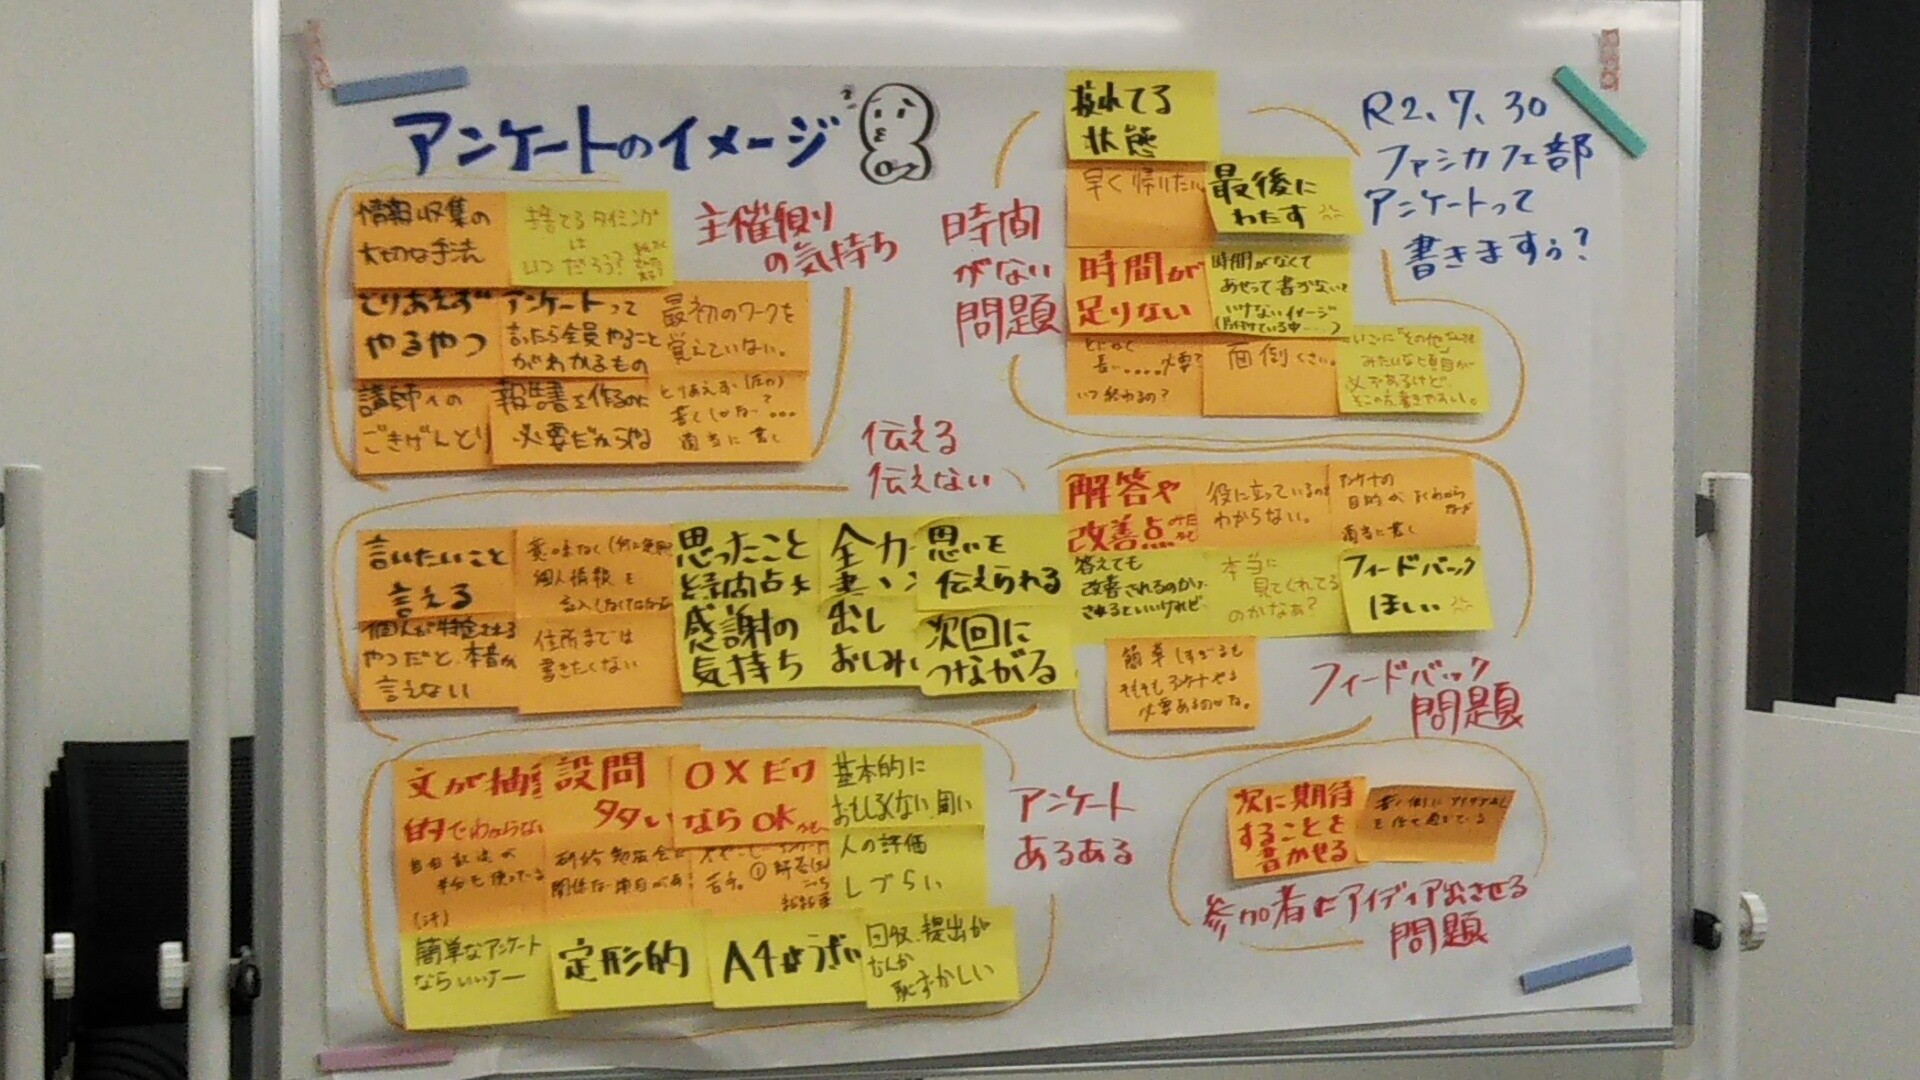 アンケートのイメージ
R2、7、30
ファシカフェ部
アンケートって
書きますぅ?
主催側り
の気持ち
情報収集の
大切な手法
捨てるタイミング
は
いつだろう?
とりあえず
やるやつ
アンケートって
言ったら全員やること
がわかるもの
最初のワークを
覚えていない。
講師への
ごきげんとり
報告書を作るのに
必要だからね
とりあえず
適当に書く
時間
がない
問題
疲れてる
状態
早く帰りたい
最後に
わたす
時間が
足りない
時間がなくて
あせって書かないと
いけないイメージ
とにかく
長い
いつ終わるの?
面倒くさい。
みたいな項目が
伝える
伝えない
言いたいこと
言える
個人情報を
思ったこと
感謝の
気持ち
全力
出し
おしみ
思いを
伝えられる
個人が特定される
やつだと、本音が
言えない
住所までは
書きたくない
次回に
つながる
解答や
改善点
役に立っているのか
わからない。
アンケートの
目的がよくわから
適当に書く
答えても
改善されるのか?
されるといいけれど
本当に
見てくれてる
のかなぁ?
フィードバック
ほしい
簡単すぎるも
そもそもアンケートやる
必要あるのかな。
フィードバック
問題
アンケート
あるある
文が抽象
的でわからない
設問
多い
OXだけ
ならOK
基本的に
おもしろくない
自由記述が
研修勉強会に
関係ない項目がある
人の評価
しづらい
簡単なアンケート
ならいいけー
定形的
A4ようざい
回収、提出が
なんか
恥ずかしい
次に期待
することを
書かせる
参加者にアイディア出させる
問題